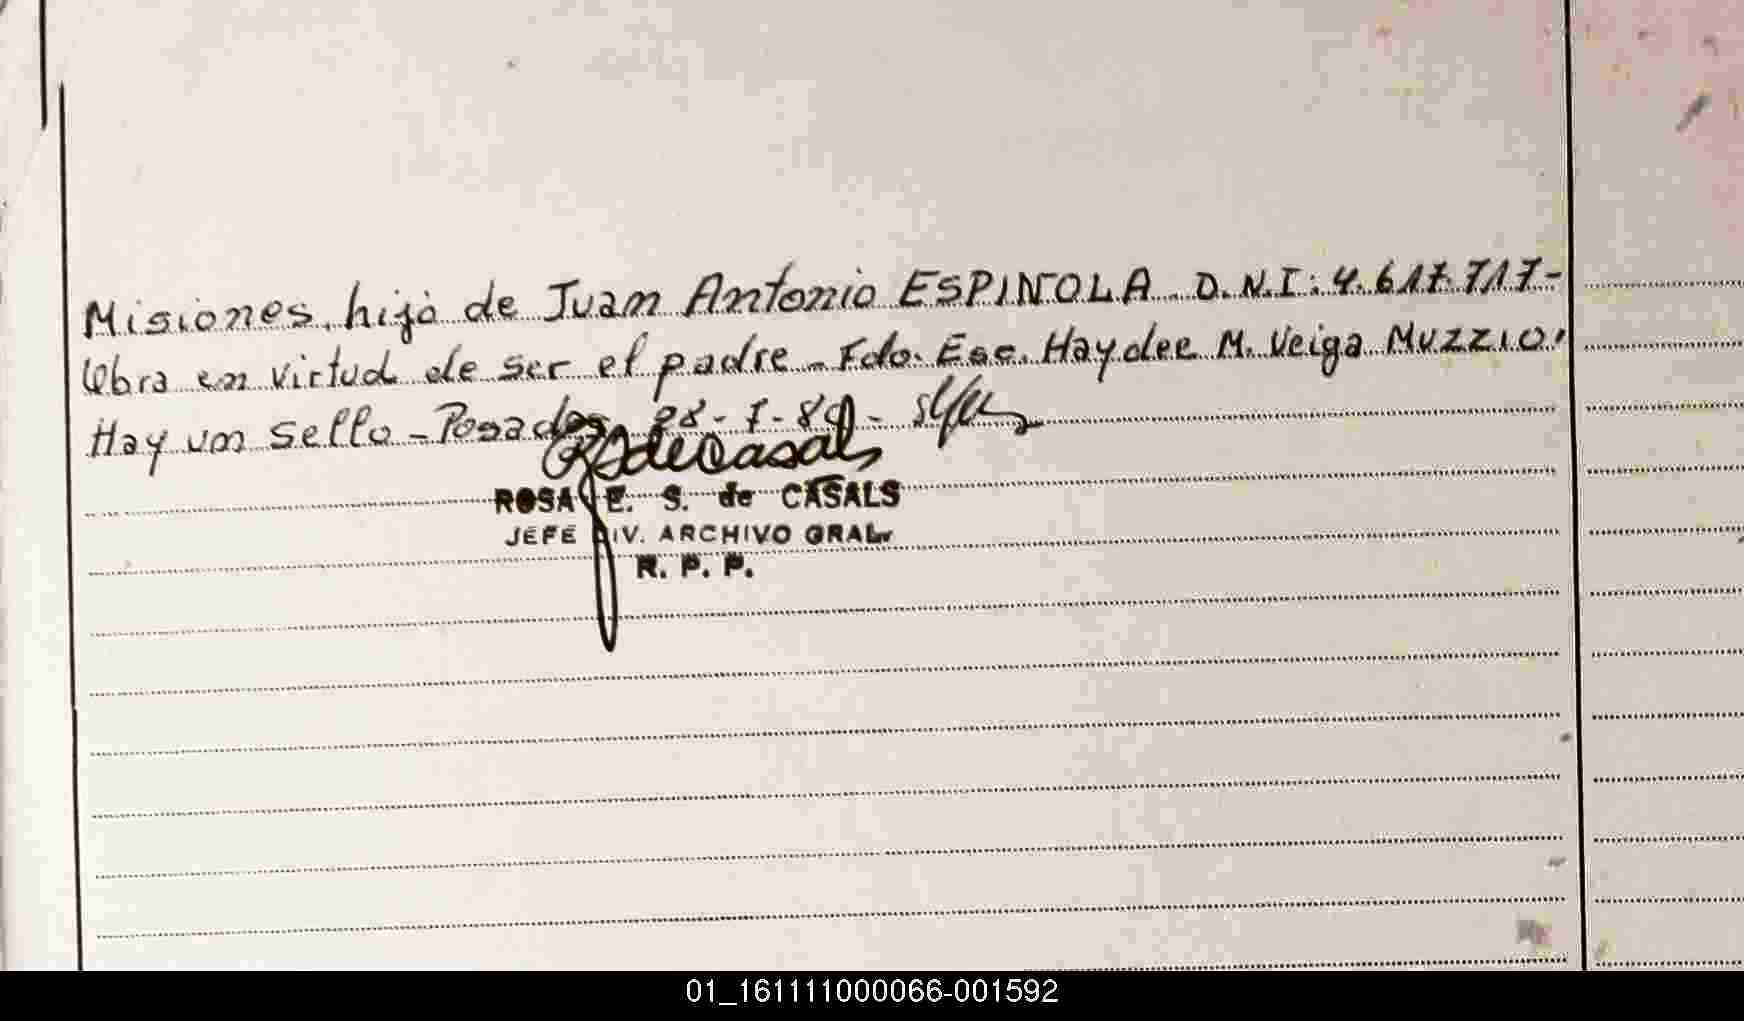 Misiones, hijo de Juan Antonio ESPINOLA. D.N.I: 4.617.717-
Obra en virtud de ser el padre - Fdo. Esc. Haydee M. Veiga MUZZIO.
Hay un sello - Posadas 28-
ROSA E. S. de CASALS
JEFE DIV. ARCHIVO GRAL.
R. P. P.
01_161111000066-001592